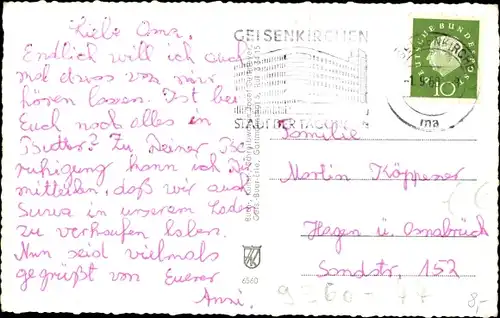 Liebe Oma.
Endlich will ich auch
mal etwas von mir
hören lassen. Ist bei
Euch noch alles in
Butter? Zu Deiner Be
ruhigung kann ich Dir
mitteilen, daß wir auch
Suwa in unserem Laden
zu verkaufen haben.
Nun seid vielmals
gegrüßt von Euerer
Anni.
GELSENKIRCHEN
STADT DER TAUSEND
DEUTSCHE BUNDESPOST
10
ma
6560
Familie
Martin Köppener
Hagen ü. Osnabrück
Sandstr. 152
8,-